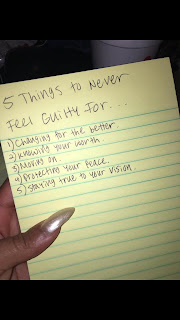 5 Things to Never
Feel Guilty For...
1) Changing for the better.
2) Knowing your worth.
3) Moving on.
4) Protecting your peace.
5) Staying true to your vision.